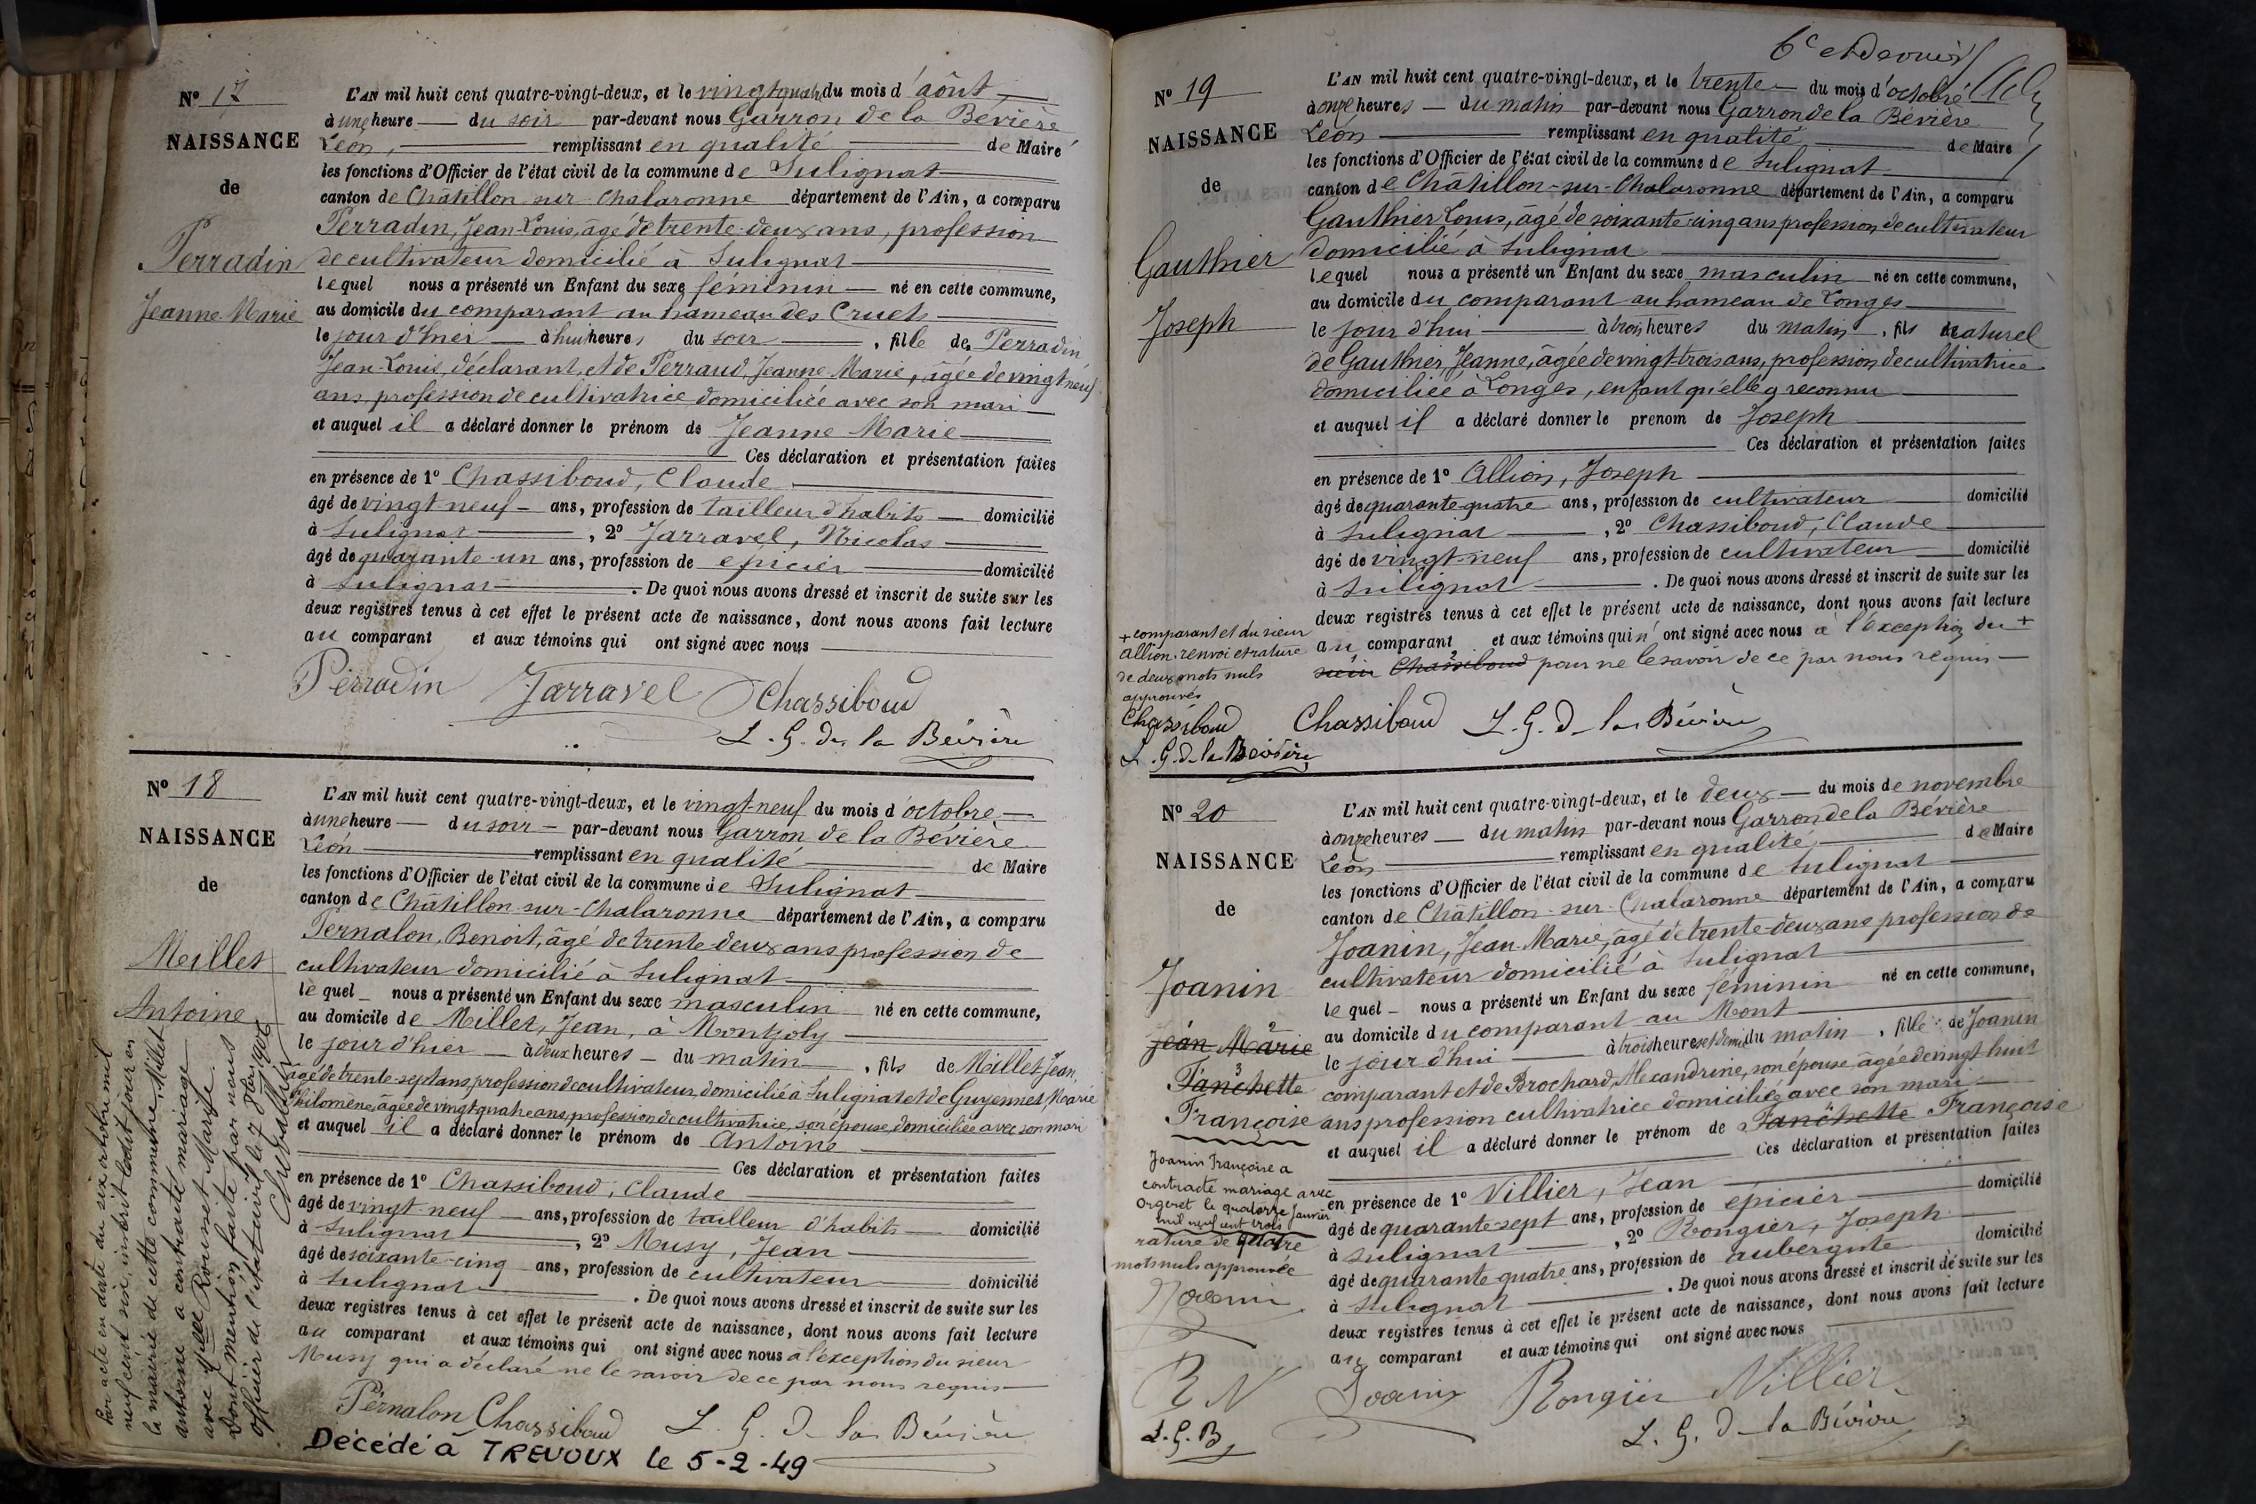 N° 17
NAISSANCE
de
Perradin
Jeanne Marie
L'AN mil huit cent quatre-vingt-deux, et le vingt-quatre du mois d'août
à une heure du soir par-devant nous Garron de la Bévière
Léon, remplissant en qualité de Maire
les fonctions d'Officier de l'état civil de la commune de Sulignat
canton de Châtillon-sur-Chalaronne département de l'Ain, a comparu
Perradin, Jean-Louis, âgé de trente-deux ans, profession
de cultivateur domicilié à Sulignat
lequel nous a présenté un Enfant du sexe féminin né en cette commune,
au domicile du comparant au hameau des Cruets
le jour d'hier à huit heures du soir, fille de Perradin
Jean-Louis, déclarant, et de Perraud, Jeanne Marie, âgée de vingt-neuf
ans, profession de cultivatrice domiciliée avec son mari
et auquel il a déclaré donner le prénom de Jeanne Marie
Ces déclaration et présentation faites
en présence de 1° Chassiboud, Claude
âgé de vingt-neuf ans, profession de tailleur d'habits domicilié
à Sulignat, 2° Jarravel, Nicolas
âgé de quarante-un ans, profession de épicier domicilié
à Sulignat. De quoi nous avons dressé et inscrit de suite sur les
deux registres tenus à cet effet le présent acte de naissance, dont nous avons fait lecture
au comparant et aux témoins qui ont signé avec nous
Perradin Jarravel Chassiboud
L. G. de la Bévière
N° 18
NAISSANCE
de
Meillet
Antoine
Par acte en date du six octobre mil
neuf cent six, inscrit ledit jour en
la mairie de cette commune, Millet
antoine a contracté mariage
avec Mlle Rousset Marie
Dont mention faite par nous
officier de l'état civil le 7 8bre 1906
Chevallier
L'AN mil huit cent quatre-vingt-deux, et le vingt-neuf du mois d'octobre
à une heure du soir par-devant nous Garron de la Bévière
Léon remplissant en qualité de Maire
les fonctions d'Officier de l'état civil de la commune de Sulignat
canton de Châtillon-sur-Chalaronne département de l'Ain, a comparu
Pernalon, Benoit, âgé de trente-deux ans profession de
cultivateur domicilié à Sulignat
lequel nous a présenté un Enfant du sexe masculin né en cette commune,
au domicile de Millet, Jean, à Montjoly
le jour d'hier à deux heures du matin, fils de Meillet Jean,
âgé de trente-sept ans, profession de cultivateur, domicilié à Sulignat et de Guyennet, Marie
Philomène, âgée de vingt-quatre ans, profession de cultivatrice, son épouse, domiciliée avec son mari
et auquel il a déclaré donner le prénom de Antoine
Ces déclaration et présentation faites
en présence de 1° Chassiboud, Claude
âgé de vingt-neuf ans, profession de tailleur d'habits domicilié
à Sulignat, 2° Musy, Jean
âgé de soixante-cinq ans, profession de cultivateur domicilié
à Sulignat. De quoi nous avons dressé et inscrit de suite sur les
deux registres tenus à cet effet le présent acte de naissance, dont nous avons fait lecture
au comparant et aux témoins qui ont signé avec nous à l'exception du sieur
Musy qui a déclaré ne le savoir de ce par nous requis
Pernalon Chassiboud L. G. D. la Bévière
Décédé à TREVOUX le 5-2-49
N° 19
NAISSANCE
de
Gauthier
Joseph
L'AN mil huit cent quatre-vingt-deux, et le trente du mois d'octobre
à onze heures du matin par-devant nous Garron de la Bévière
Léon remplissant en qualité de Maire
les fonctions d'Officier de l'état civil de la commune de Sulignat
canton de Châtillon-sur-Chalaronne département de l'Ain, a comparu
Gauthier Louis, âgé de soixante-cinq ans profession de cultivateur
domicilié à Sulignat
lequel nous a présenté un Enfant du sexe masculin né en cette commune,
au domicile du comparant au hameau de Longes
le jour d'hui à trois heures du matin, fils naturel
de Gauthier, Jeanne, âgée de vingt-trois ans, profession de cultivatrice
domiciliée à Longes, enfant qu'elle a reconnu
et auquel il a déclaré donner le prenom de Joseph
Ces déclaration et présentation faites
en présence de 1° Allion, Joseph
âgé de quarante-quatre ans, profession de cultivateur domicilié
à Sulignat, 2° Chassiboud, Claude
âgé de vingt-neuf ans, profession de cultivateur domicilié
à Sulignat. De quoi nous avons dressé et inscrit de suite sur les
deux registres tenus à cet effet le présent acte de naissance, dont nous avons fait lecture
au comparant et aux témoins qui n'ont signé avec nous à l'exception du +
sieur Chassiboud pour ne le savoir de ce par nous requis
+ comparant et du sieur
Allion. renvoi et rature
de deux mots nuls
approuvés
Chassiboud
L. G. d. la Bévière
Chassiboud L. G. D. la Bévière
N° 20
NAISSANCE
de
Joanin
Jean Marie
Fanchette
Françoise
Joanin Françoise a
contracté mariage avec
Orgeret le quatorze Janvier
mil neuf cent trois
rature de quatre
mots nuls approuvée
Joanin
R N
L. G. B
L'AN mil huit cent quatre-vingt-deux, et le deux du mois de novembre
à onze heures du matin par-devant nous Garron de la Bévière
Léon remplissant en qualité de Maire
les fonctions d'Officier de l'état civil de la commune de Sulignat
canton de Châtillon-sur-Chalaronne département de l'Ain, a comparu
Joanin, Jean-Marie, âgé de trente-deux ans profession de
cultivateur domicilié à Sulignat
lequel nous a présenté un Enfant du sexe féminin né en cette commune,
au domicile du comparant au Mont
le jour d'hui à trois heures et demie du matin, fille de Joanin
comparant et de Brochard, Alexandrine, son épouse âgée de vingt-huit
ans profession cultivatrice domiciliée avec son mari
et auquel il a déclaré donner le prénom de Fanchette Françoise
Ces déclaration et présentation faites
en présence de 1° Villier, Jean
âgé de quarante-sept ans, profession de épicier domicilié
à Sulignat, 2° Rongier, Joseph
âgé de quarante-quatre ans, profession de aubergiste domicilié
à Sulignat. De quoi nous avons dressé et inscrit de suite sur les
deux registres tenus à cet effet le présent acte de naissance, dont nous avons fait lecture
au comparant et aux témoins qui ont signé avec nous
Joanin Rongier Villier
L. G. D. la Bévière